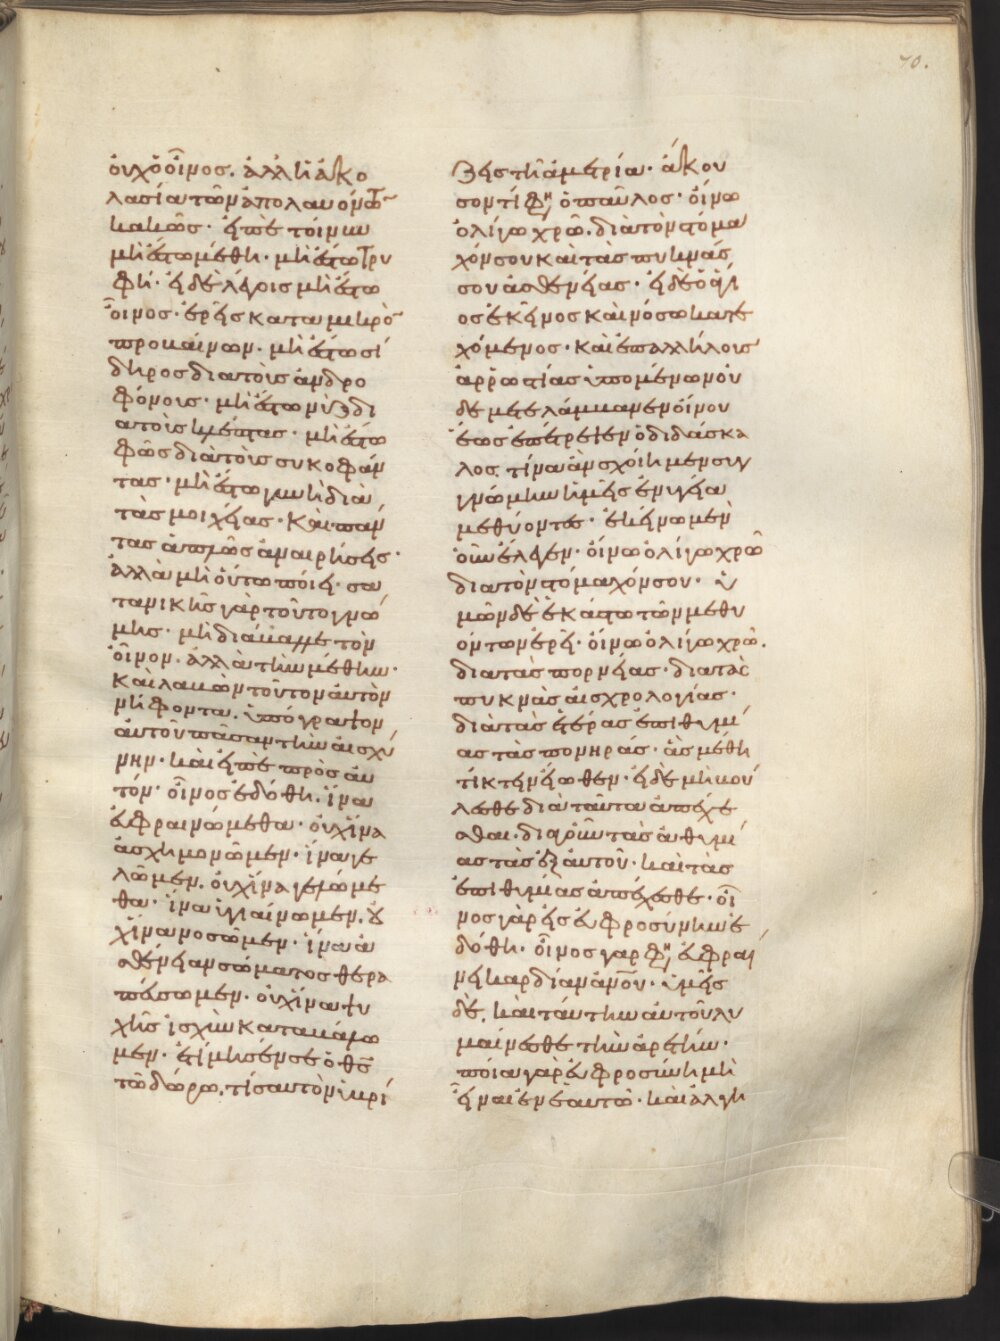 οὐχ ὁ οἶνος. ἀλλ ἡ ἀκο
λασία τῶν ἀπολαυόντῶ
κακῶς· εἰπὲ τοίνυν
μὴ ἔστω μέθη· μὴ ἔστω τρυ
φή· εἰ δὲ λέγοις μὴ ἔστω
οἶνος· ἐρεῖς κατα μικρὸ
προβαίνων· μὴ ἔστω σί
δηρος δια τοὺς ἀνδρο
φόνους· μὴ ἔστω νὺξ δι
α τοὺς κλέπτας· μὴ ἔστω
φῶς διὰ τοὺς συκοφάν
τας· μὴ ἔστω γυνὴ διὰ
τὰς μοιχείας· καὶ παν
τας ἁπλῶς ἀναιρήσεις·
ἀλλὰ μὴ οὕτω ποίει· σα
τανικῆς γὰρ τοῦτο γνώ
μης· μὴ διάβαλλε τὸν
οἶνον· ἀλλὰ τὴν μέθην·
καὶ λαβὼν τοῦτον αὐτὸν
νήφοντα. ὑπόγραψον
αὐτοῦ πᾶσαν τὴν αἰσχύ
νην· καὶ εἰπὲ πρὸς αυ
τόν· οἶνος ἐδόθη. ἵνα
εὐφραινώμεθα· οὐχ ἵνα
ἀσχημονῶμεν· ἵνα γε
λῶμεν. οὐχ ἵνα γελώμε
θα· ἵνα ὑγιαίνωμεν. οὐ
χ ἵνα νοσῶμεν· ἵνα ἀ
σθένειαν σώματος θερα
πεύσωμεν. οὐχ ἵνα ψυ
χῆς ἰσχὺν καταβάλω
μεν· ἐτίμησέν σε ὁ θς
τῶ δώρω. τί σαυτὸν ὑβρί
ζεις τῆ ἀμετρία· ἄκου
σον τί φη ὁ παῦλος· οἴνω
ὀλίγω χρῶ. διὰ τὸν στόμα
χόν σου καὶ τὰς πυκνάς
σου ἀσθενείας· εἰ δὲ ὁ ἅγι
ος ἐκεῖνος καὶ νόσω κατε
χόμενος· καὶ ἐπαλλήλους
ἀρρωστίας ὑπομένων οὐ
δε μετελάμβανεν οἴνου
ἕως ἐπέτρεψεν ὁ διδάσκα
λος. τίνα ἂν σχοίημεν συγ
γνώμην ἡμεῖς ἐν ὑγεία
μεθύοντες· ἐκείνω μὲν
οὖν ἔλεγεν· οἴνω ὀλίγω χρῶ
διὰ τὸν στόμαχόν σου· ὑ
μῶν δὲ ἑκάστω τῶν μεθυ
όντων ἐρεῖ· οἴνω ὀλίγω χρῶ.
διὰ τὰς πορνείας· διὰ τὰς
πυκνὰς αἰσχρολογίας·
διὰ τὰς ἑτέρας ἐπιθυμί
ας τὰς πονηράς· ἃς μέθη
τίκτειν εἴωθεν· εἰ δὲ μὴ βού
λεσθε διὰ ταῦτα ἀπέχε
σθαι. διὰ γοῦν τὰς ἀθυμί
ας τὰς ἐξ αὐτοῦ· καὶ τὰς
ἐπιθυμίας ἀπέχεσθε· οἶ
νος γὰρ εἰς εὐφροσύνην ἐ
δόθη· οἶνος γαρ φη εὐφραί
νει καρδίαν ἀνου· ὑμεῖς
δὲ. καὶ ταύτην αὐτοῦ λυ
μαίνεσθε τὴν ἀρετήν·
ποία γὰρ εὐφροσύνη μὴ
εἶναι ἐν ἑαυτῶ· καὶ ἀλγη